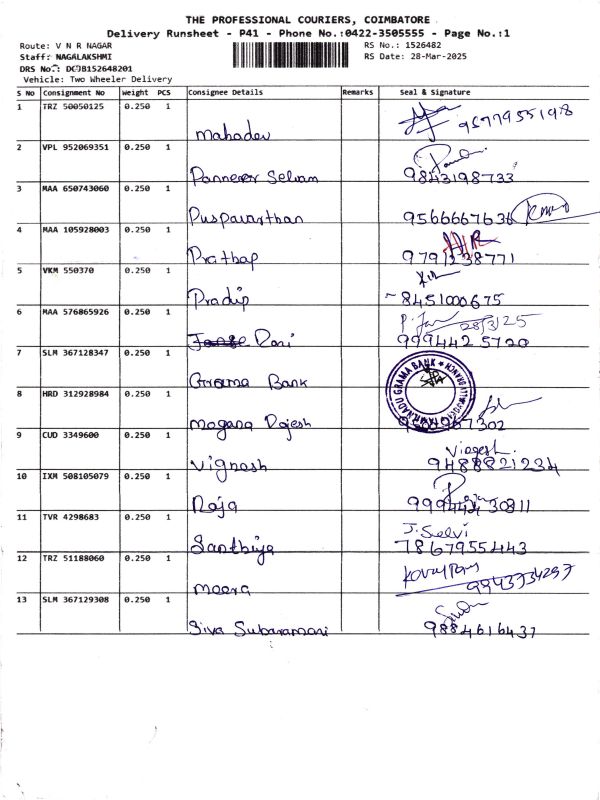 THE PROFESSIONAL COURIERS, COIMBATORE
Delivery Runsheet - P41 - Phone No.:0422-3505555 - Page No.:1
Route: V N R NAGAR RS No.: 1526482
Staff: NAGALAKSHMI RS Date: 28-Mar-2025
DRS No.: DCJB152648201
Vehicle: Two Wheeler Delivery
S No Consignment No Weight PCS Consignee Details Remarks Seal & Signature
1 TRZ 50050125 0.250 1
Mahadev
2 VPL 952069351 0.250 1
Panneer Selvam 9843198733
3 MAA 650743060 0.250 1
Puspavarthan 9566667636
4 MAA 105928003 0.250 1
Prathap
5 VKM 550370 0.250 1
Pradip 8451000675
6 MAA 576865926 0.250 1 28/3/25
Dari 9994425720
7 SLM 367128347 0.250 1
Grama Bank
8 HRD 312928984 0.250 1
TAMILNADU GRAMA BANK
9 CUD 3349600 0.250 1 Vignesh.
Vignesh 9488821234
10 IXM 508105079 0.250 1
Raja
11 TVR 4298683 0.250 1 J. Selvi
Santhiya 7867955443
12 TRZ 51188060 0.250 1
meera 9943734297
13 SLM 367129308 0.250 1
Siva Subaramani 9884616437